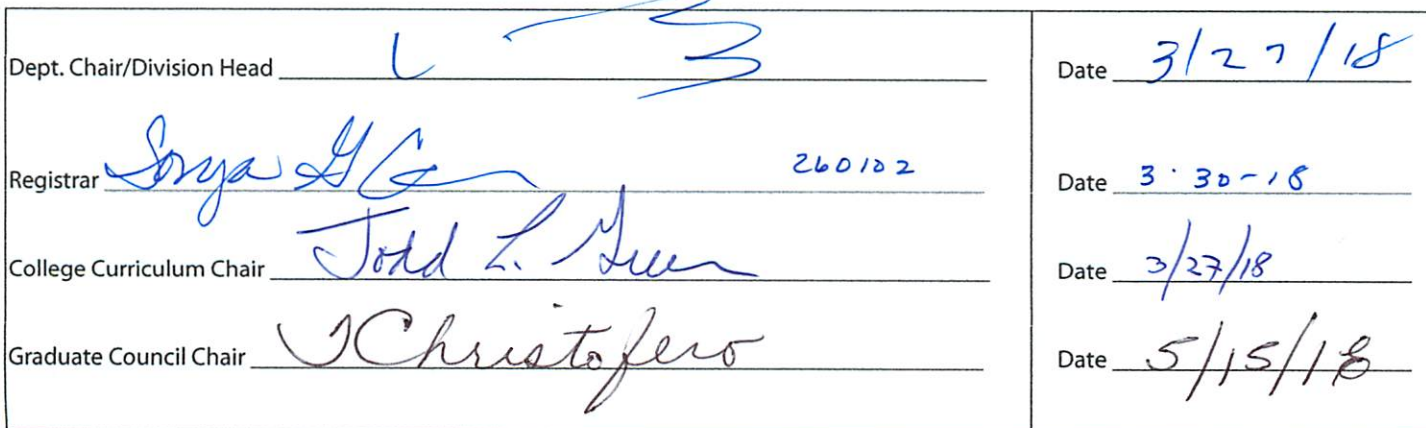 Dept. Chair/Division Head Date 3/27/18
Registrar Sonya G 260102 Date 3-30-18
College Curriculum Chair Todd L. Green Date 3/27/18
Graduate Council Chair TChristofero Date 5/15/18